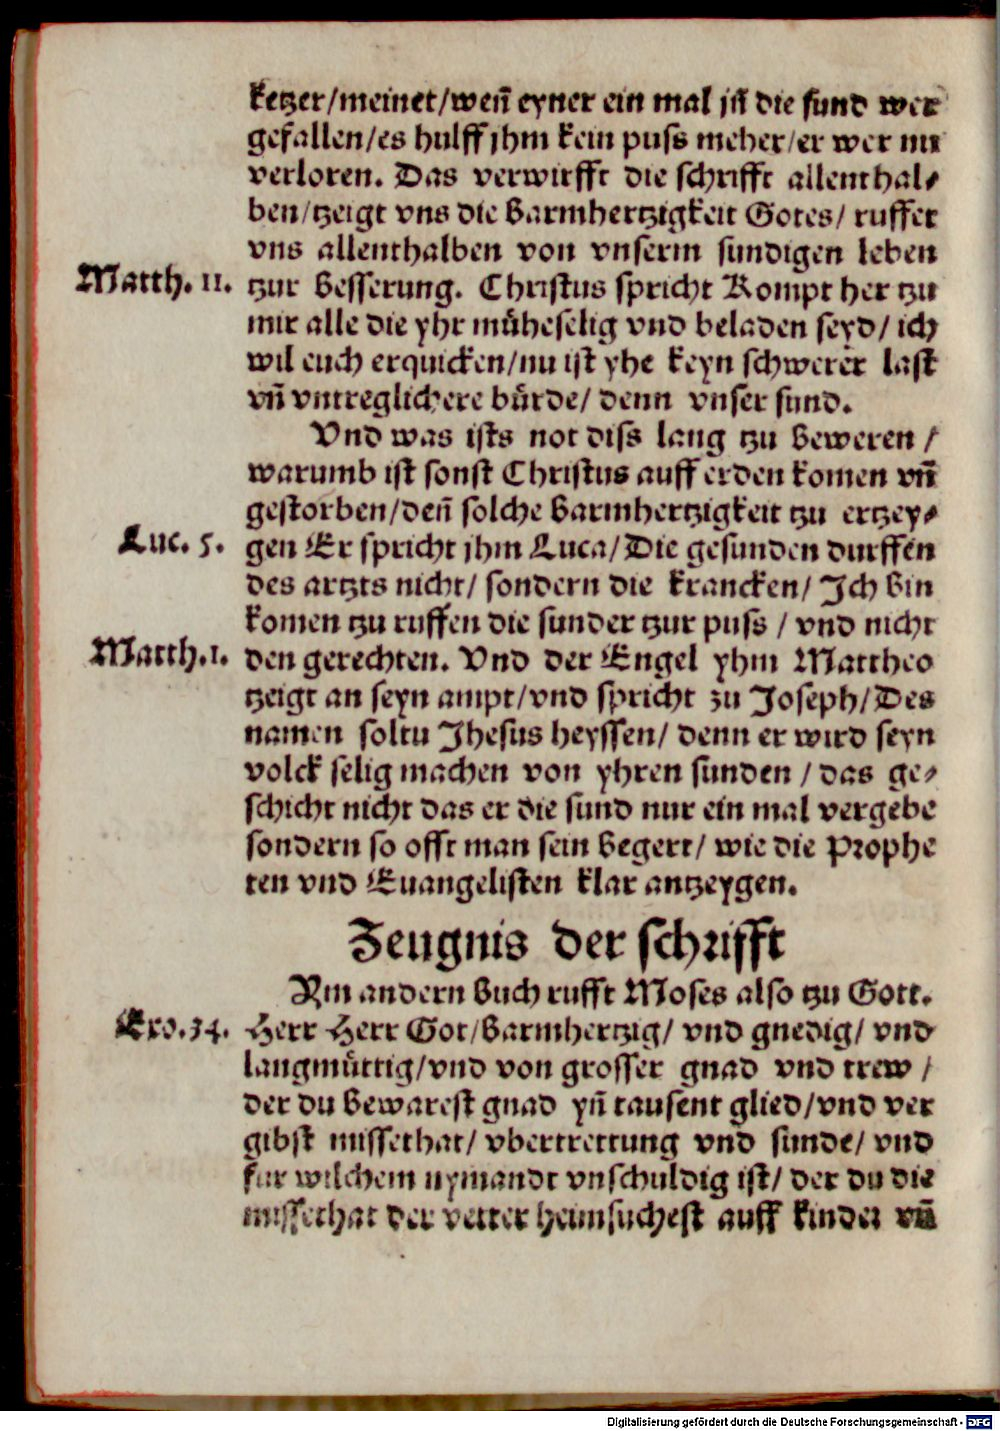 ketzer/meinet/weñ eyner ein mal jñ die sund wer
gefallen/es hulff jhm kein puss meher/er wer nu
verloren. Das verwirfft die schrifft allenthal⸗
ben/tzeigt vns die barmhertzigkeit Gotes/ ruffet
vns allenthalben von vnserm sundigen leben
Matth. 11. tzur besserung. Christus spricht Kompt her tzu
mir alle die yhr müheselig vnd beladen seyd/ ich
wil euch erquicken/nu ist yhe keyn schwerer last
vñ vntreglichere bürde/ denn vnser sund.
Vnd was ists not diss lang tzu beweren /
warumb ist sonst Christus auff erden komen vñ
gestorben/deñ solche barmhertzigkeit tzu ertzey⸗
Luc. 5. gen Er spricht jhm Luca/Die gesunden durffen
des artzts nicht/ sondern die krancken/ Ich bin
komen tzu ruffen die sunder tzur puss / vnd nicht
Matth.1. den gerechten. Vnd der Engel yhm Mattheo
tzeigt an seyn ampt/vnd spricht zu Joseph/Des
namen soltu Jhesus heyssen/ denn er wird seyn
volck selig machen von yhren sunden / das ge⸗
schicht nicht das er die sund nur ein mal vergebe
sondern so offt man sein begert/ wie die Prophe
ten vnd Euangelisten klar antzeygen.
Zeugnis der schrifft
Am andern buch rufft Moses also tzu Gott.
Exo.34. Herr Herr Got/barmhertzig/ vnd gnedig/ vnd
langmüttig/vnd von grosser gnad vnd trew /
der du bewarest gnad yñ tausent glied/vnd ver
gibst missethat/ vbertrettung vnd sunde/ vnd
fur wilchem nymandt vnschuldig ist/ der du die
missethat der vetter heimsuchest auff kinder vñ
Digitalisierung gefördert durch die Deutsche Forschungsgemeinschaft - DFG